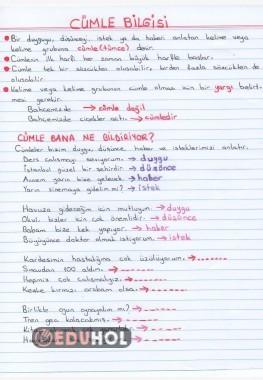 CÜMLE BİLGİSİ
• Bir duyguyu, düşünceyi, istek ya da haberi anlatan kelime veya
kelime grubuna cümle (tümce) denir.
• Cümlenin ilk harfi her zaman büyük harfle başlar.
• Cümle tek bir sözcükten oluşabilir, birden fazla sözcükten de
oluşabilir.
• Kelime veya kelime grubunun cümle olması için bir yargı belirt-
mesi gerekir.
Bahcemizde → cümle değil
Bahcemizde cicekler acti. → cümledir
CÜMLE BANA NE BİLDİRİYOR?
Cümleler bizim duygu, düşünce, haber ve isteklerimizi anlatır.
Ders calismayi seviyorum. → duygu
İstanbul güzel bir şehirdir. → düşünce
Annem yarın bize gelecek. → haber
Yarin sinemaya gidelim mi? → istek
Havuza gideceğim icin mutluyum. → duygu
Okul, bizler icin cok önemlidir. → düşünce
Babam bize kek yapıyor. → haber
Büyüyünce doktor olmak istiyorum. → istek
Kardesimin hastalığına cok üzülüyorum. →
Sınavdan 100 aldım. →
Hepimiz cok calismalıyız. →
Keske kırmızı arabam olsa. →
Birlikte oyun oynayalım mi? →
Tren gec kalacakmış. →
EDUHOL